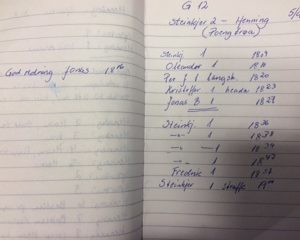 God morning Jonas 18
G 12
Steinkjer 2 - Henning
(Poengrøa)
Steinkj 1
Oleander 1 18
Per J 1 langsk. 18 20
Kristoffer 1 heada 18 23
Jonas B 1 18 29
Steinkj 1 18 36
-"- 1 18 38
-"- 1 18 39
-"- 1 18 43
Fredric 1 18
Steinkjer 1 straffe 19